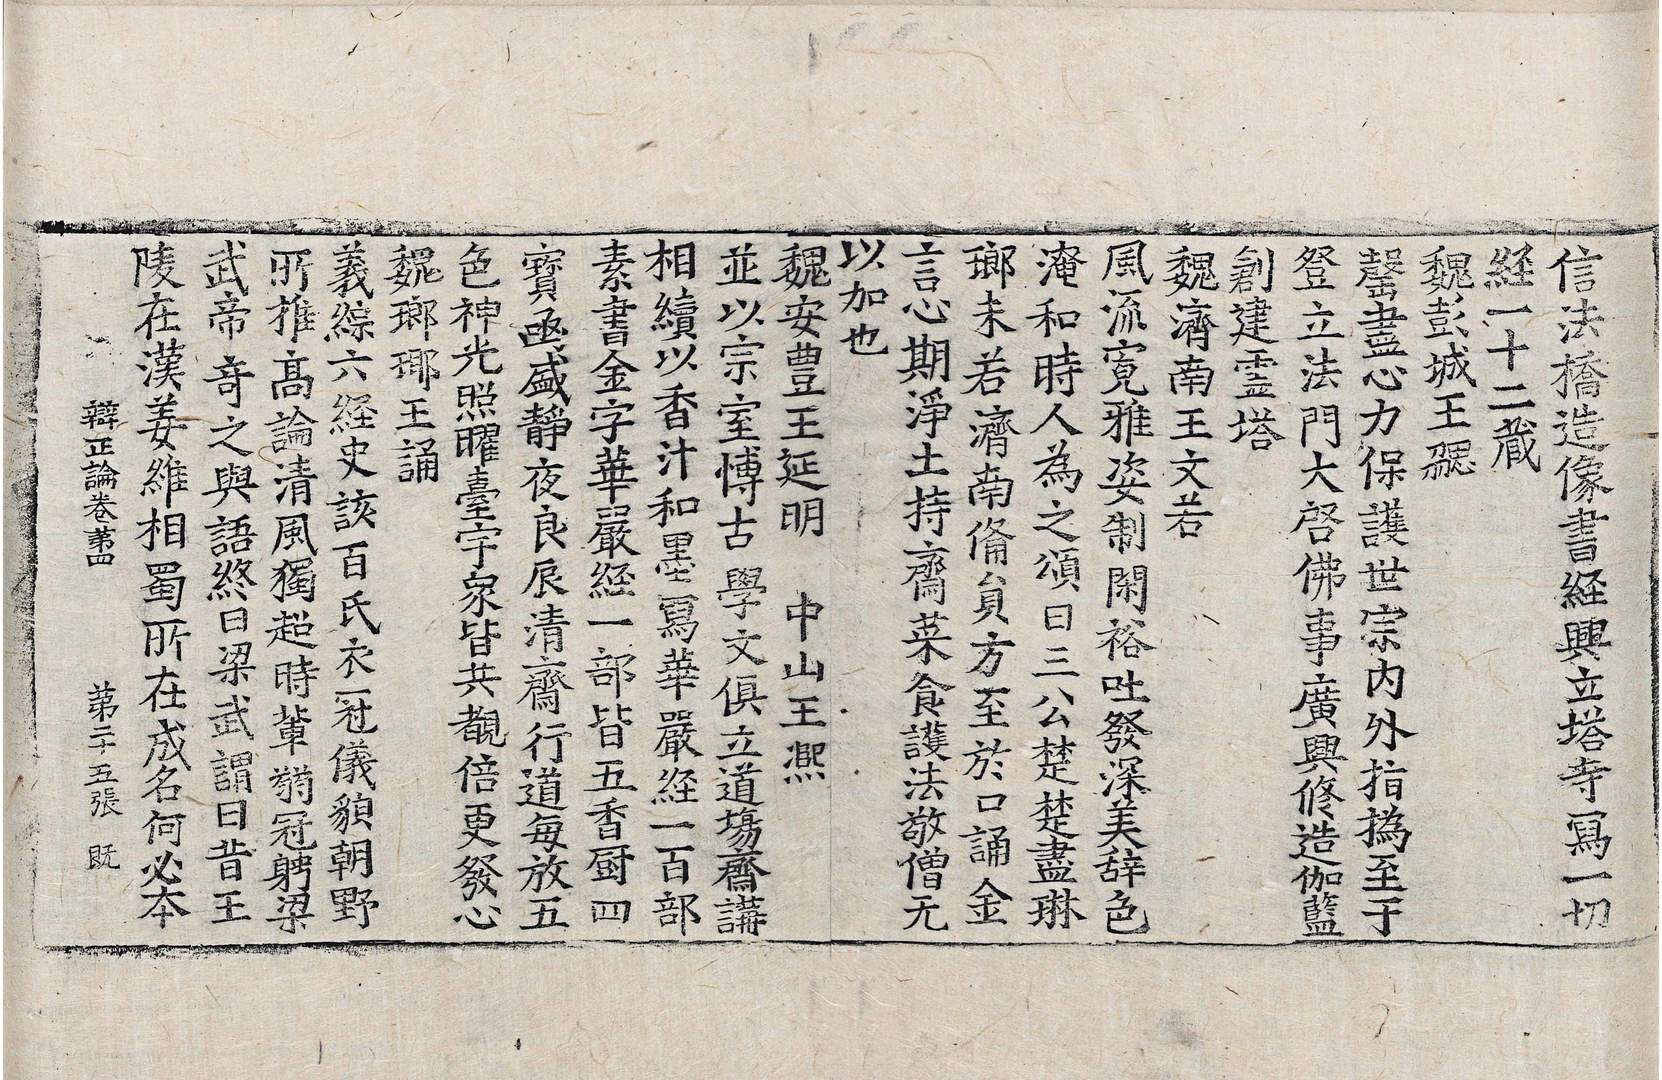 信法橋造像書経興立塔寺寫一切
経一十二藏
魏彭城王勰
罄盡心力保護世宗内外指撝至于
登立法門大啓佛事廣興修造伽藍
創建霊塔
魏濟南王文若
風流寛雅姿制閑裕吐發深美辞色
淹和時人為之頌曰三公楚楚盡琳
瑯未若濟南俻貟方至於口誦金
言心期淨土持齋菜食護法敬僧无
以加也
魏安豊王延明　中山王凞
並以宗室博古學文俱立道塲齋講
相續以香汁和墨寫華嚴経一百部
素書金字華嚴経一部皆五香厨四
寳函盛静夜良辰清齋行道每放五
色神光照曜臺宇衆皆共覩倍更發心
魏瑯瑘王誦
義綜六経史該百氏衣冠儀貌朝野
所推髙論清風獨超時輩弱冠聘梁
武帝竒之與語終日梁武謂曰昔王
陵在漢姜維相蜀所在成名何必本
辯正論卷第四　第二十五張　既